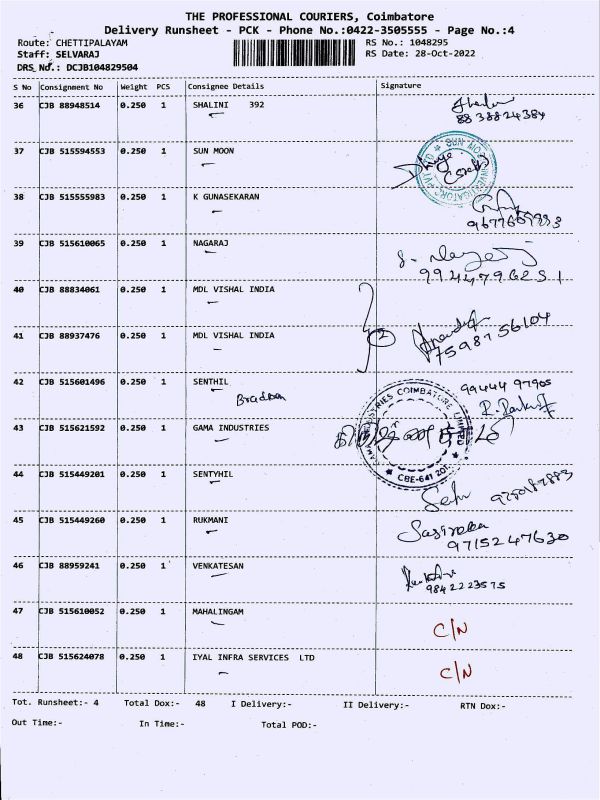 THE PROFESSIONAL COURIERS, Coimbatore
Delivery Runsheet - PCK - Phone No.:0422-3505555 - Page No.:4
Route: CHETTIPALAYAM RS No.: 1048295
Staff: SELVARAJ RS Date: 28-Oct-2022
DRS No.: DCJB104829504
S No Consignment No Weight PCS Consignee Details Signature
36 CJB 88948514 0.250 1 SHALINI 392
8838824384
37 CJB 515594553 0.250 1 SUN MOON
38 CJB 515555983 0.250 1 K GUNASEKARAN
39 CJB 515610065 0.250 1 NAGARAJ
9944796251
40 CJB 88834061 0.250 1 MDL VISHAL INDIA
2
41 CJB 88937476 0.250 1 MDL VISHAL INDIA
7598756104
42 CJB 515601496 0.250 1 SENTHIL
99444 97905
43 CJB 515621592 0.250 1 GAMA INDUSTRIES
GAMA INDUSTRIES COIMBATORE LIMITED
44 CJB 515449201 0.250 1 SENTYHIL
45 CJB 515449260 0.250 1 RUKMANI
9715247630
46 CJB 88959241 0.250 1 VENKATESAN
9842223575
47 CJB 515610052 0.250 1 MAHALINGAM
C/N
48 CJB 515624078 0.250 1 IYAL INFRA SERVICES LTD
C/N
Tot. Runsheet:- 4 Total Dox:- 48 I Delivery:- II Delivery:- RTN Dox:-
Out Time:- In Time:- Total POD:-